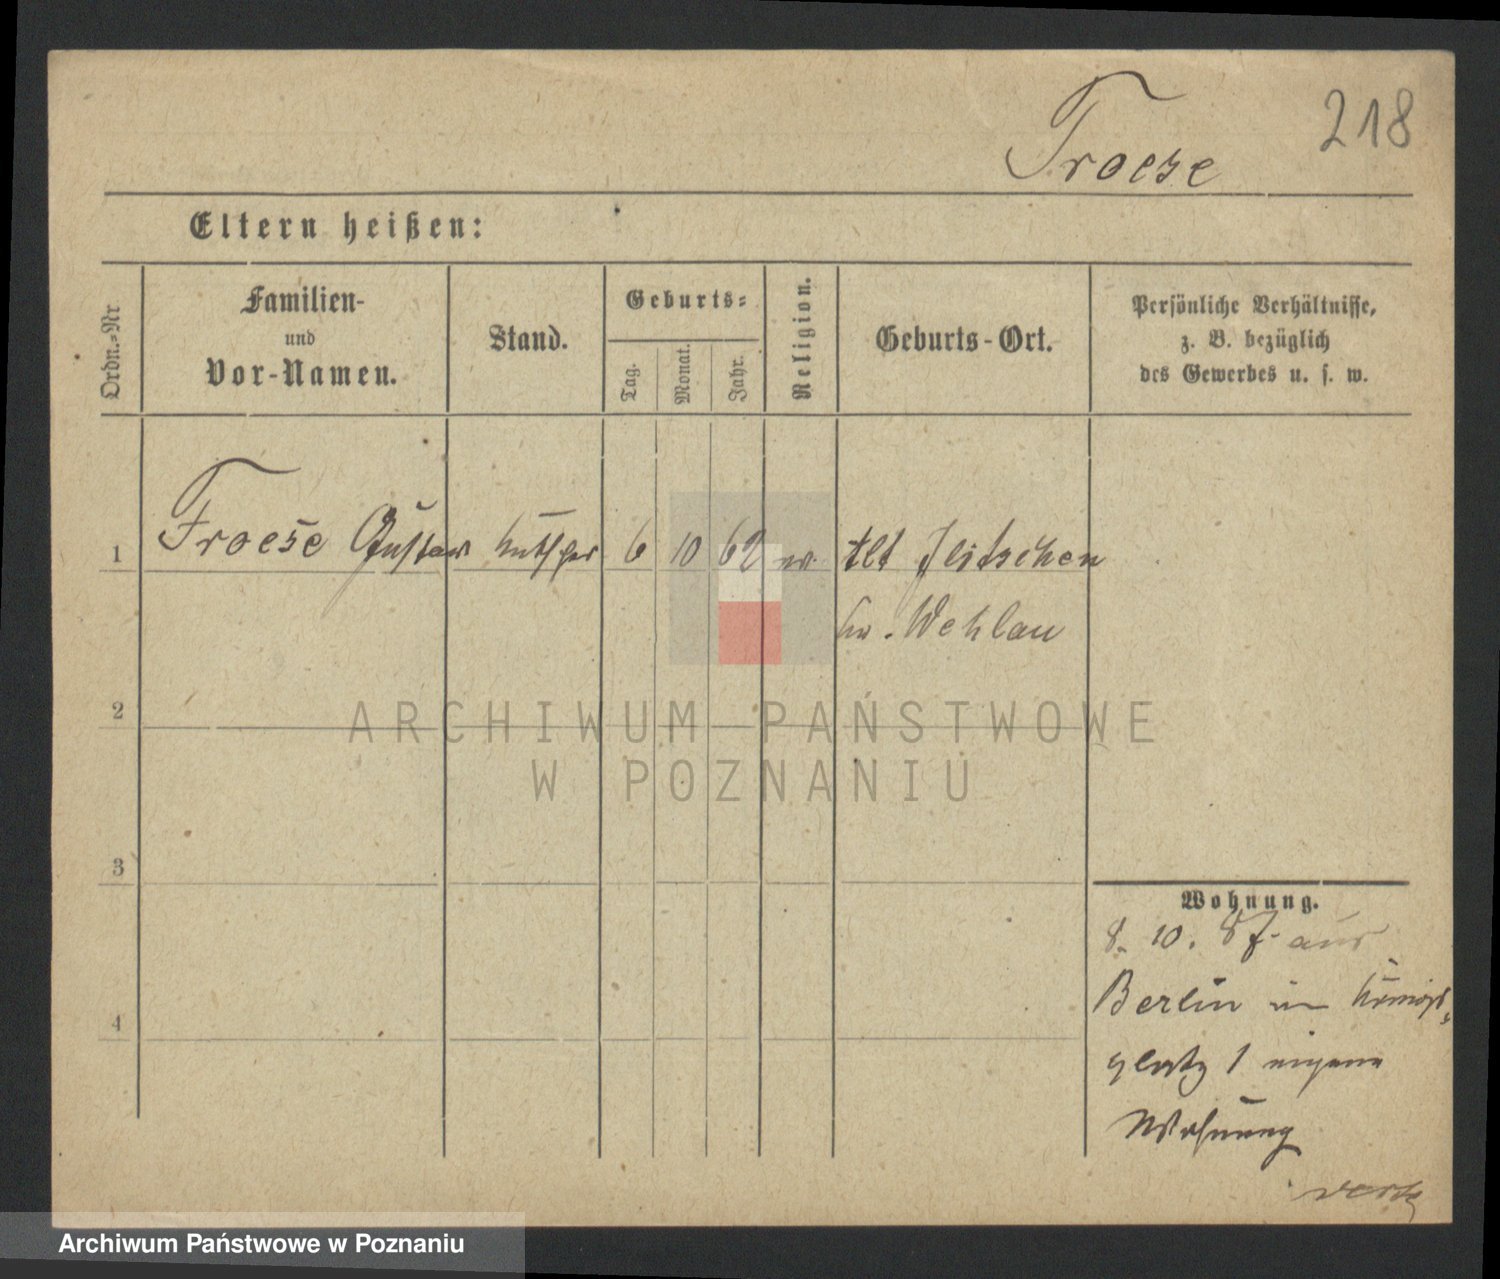 218
Froese
Eltern heißen:
Ordn.-Nr
Familien-
und
Vor-Namen.
Stand.
Geburts-
Tag.
Monat.
Jahr.
Religion.
Geburts-Ort.
Persönliche Verhältnisse,
z. B. bezüglich
des Gewerbes u. s. w.
1 Froese Gustav 6 10 62 ev. Alt Ilischken
Kr. Wehlau
2
ARCHIWUM PAŃSTWOWE
W POZNANIU
3
Wohnung.
8. 10. 87. aus
Berlin in Königs-
4
platz 1 eigene
Wohnung
Archiwum Państwowe w Poznaniu